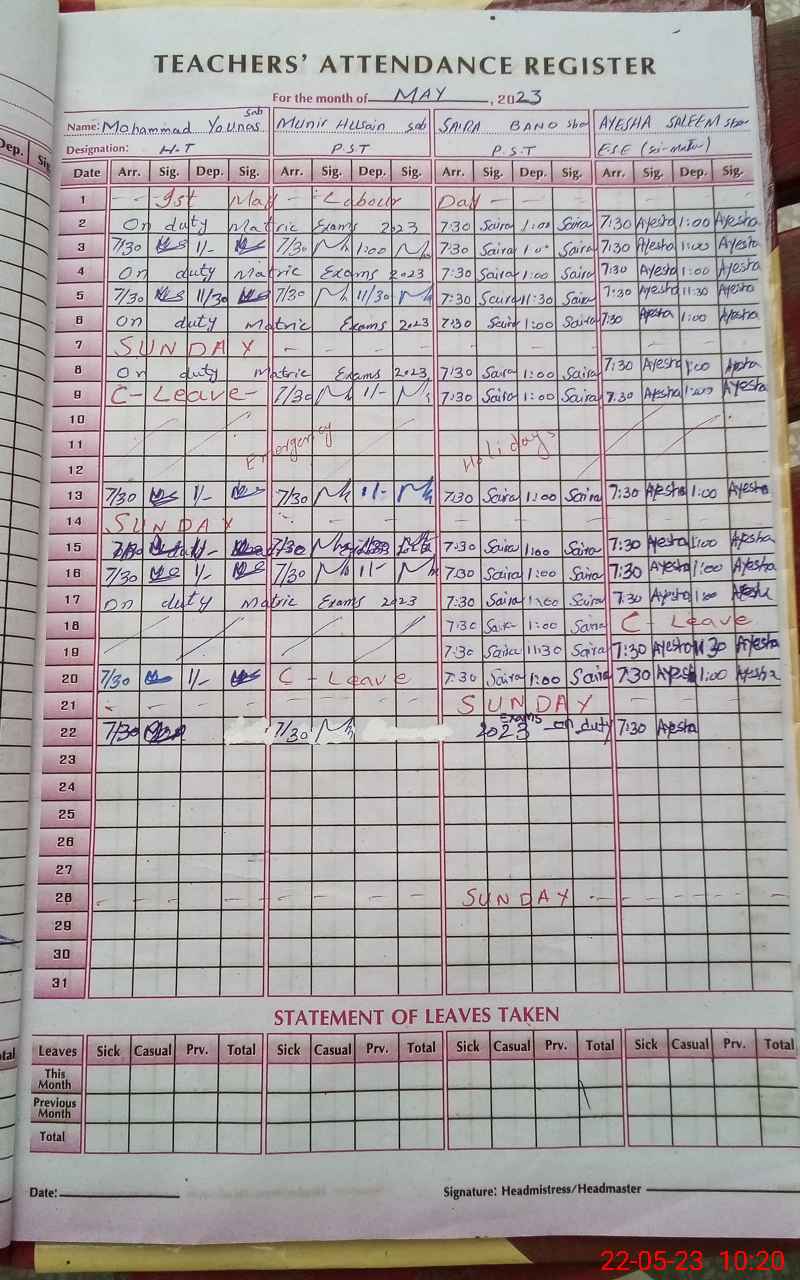 TEACHERS' ATTENDANCE REGISTER
For the month of MAY, 2023
Name: Mohammad Younas sab Munir Husain sab SAIRA BANO sba AYESHA SALEEM sba
Designation: H.T P S T P.S.T E.S.E (sci-math)
Date Arr. Sig. Dep. Sig. Arr. Sig. Dep. Sig. Arr. Sig. Dep. Sig. Arr. Sig. Dep. Sig.
1 - - 1st May - Labour Day - - - - - -
2 On duty Matric Exams 2023 7:30 Saira 1:00 Saira 7:30 Ayesha 1:00 Ayesha
3 7/30 1/- 7/30 1:00 7:30 Saira 1:00 Saira 7:30 Ayesha 1:00 Ayesha
4 On duty Matric Exams 2023 7:30 Saira 1:00 Saira 7:30 Ayesha 1:00 Ayesha
5 7/30 11/30 7/30 11/30 7:30 Saira 11:30 Saira 7:30 Ayesha 11:30 Ayesha
6 On duty Matric Exams 2023 7:30 Saira 1:00 Saira 7:30 Ayesha 1:00 Ayesha
7 SUNDAY - - - - - - - - - - -
8 On duty Matric Exams 2023 7:30 Saira 1:00 Saira 7:30 Ayesha 1:00 Ayesha
9 C-Leave- 7/30 1/- 7:30 Saira 1:00 Saira 7:30 Ayesha 1:00 Ayesha
10
11 Emergency Holidays
12
13 7/30 1/- 7/30 1/- 7:30 Saira 1:00 Saira 7:30 Ayesha 1:00 Ayesha
14 SUNDAY - - - - - - - - - - -
15 7/30 1/- 7/30 7:30 Saira 1:00 Saira 7:30 Ayesha 1:00 Ayesha
16 7/30 1/- 7/30 1/- 7:30 Saira 1:00 Saira 7:30 Ayesha 1:00 Ayesha
17 On duty Matric Exams 2023 7:30 Saira 1:00 Saira 7:30 Ayesha 1:00 Ayesha
18 7:30 Saira 1:00 Saira C-Leave
19 7:30 Saira 11:30 Saira 7:30 Ayesha 11:30 Ayesha
20 7/30 1/- C-Leave 7:30 Saira 1:00 Saira 7:30 Ayesha 1:00 Ayesha
21 - - - - - - - SUNDAY - - -
22 7/30 7/30 2023 Exams on duty 7:30 Ayesha
23
24
25
26
27
28 - - - - - - - - SUNDAY - - - - -
29
30
31
STATEMENT OF LEAVES TAKEN
Leaves Sick Casual Prv. Total Sick Casual Prv. Total Sick Casual Prv. Total Sick Casual Prv. Total
This Month
Previous Month
Total
Date: Signature: Headmistress/Headmaster
22-05-23 10:20